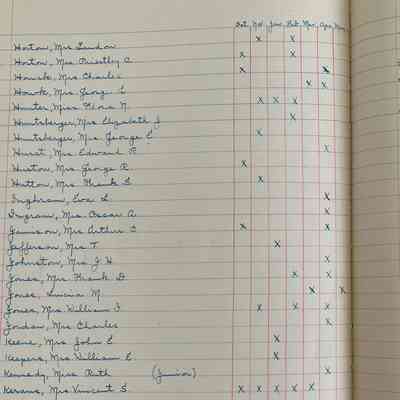 Oct. Nov. Jan. Feb. Mar. Apr. May
Horton, Mrs. Lindon x x
Horton, Mrs. Priestley C. x x
Houck, Mrs. Charles x x
Houk, Mrs. George L x x
Hunter, Miss Flora N. x x x
Huntsberger, Mrs. Elizabeth J x
Huntsberger, Mrs. George E x
Hurst, Mrs. Edward R x
Huston, Mrs. George R. x
Hutton, Mrs. Frank S x
Inghram, Eva L x
Ingram, Mrs. Oscar A. x
Jamison, Mrs. Arthur C x x
Jefferson, Mrs. T. x
Johnston, Mrs. J. H. x
Jones, Mrs. Frank D x x
Jones, Lucia M. x x
Jones, Mrs. William I. x x x
Jordan, Mrs. Charles x
Keene, Mrs. John E x
Keepers, Mrs. William E x
Kennedy, Miss Ruth (Junior) x
Kerans, Mrs. Vincent S. x x x x x